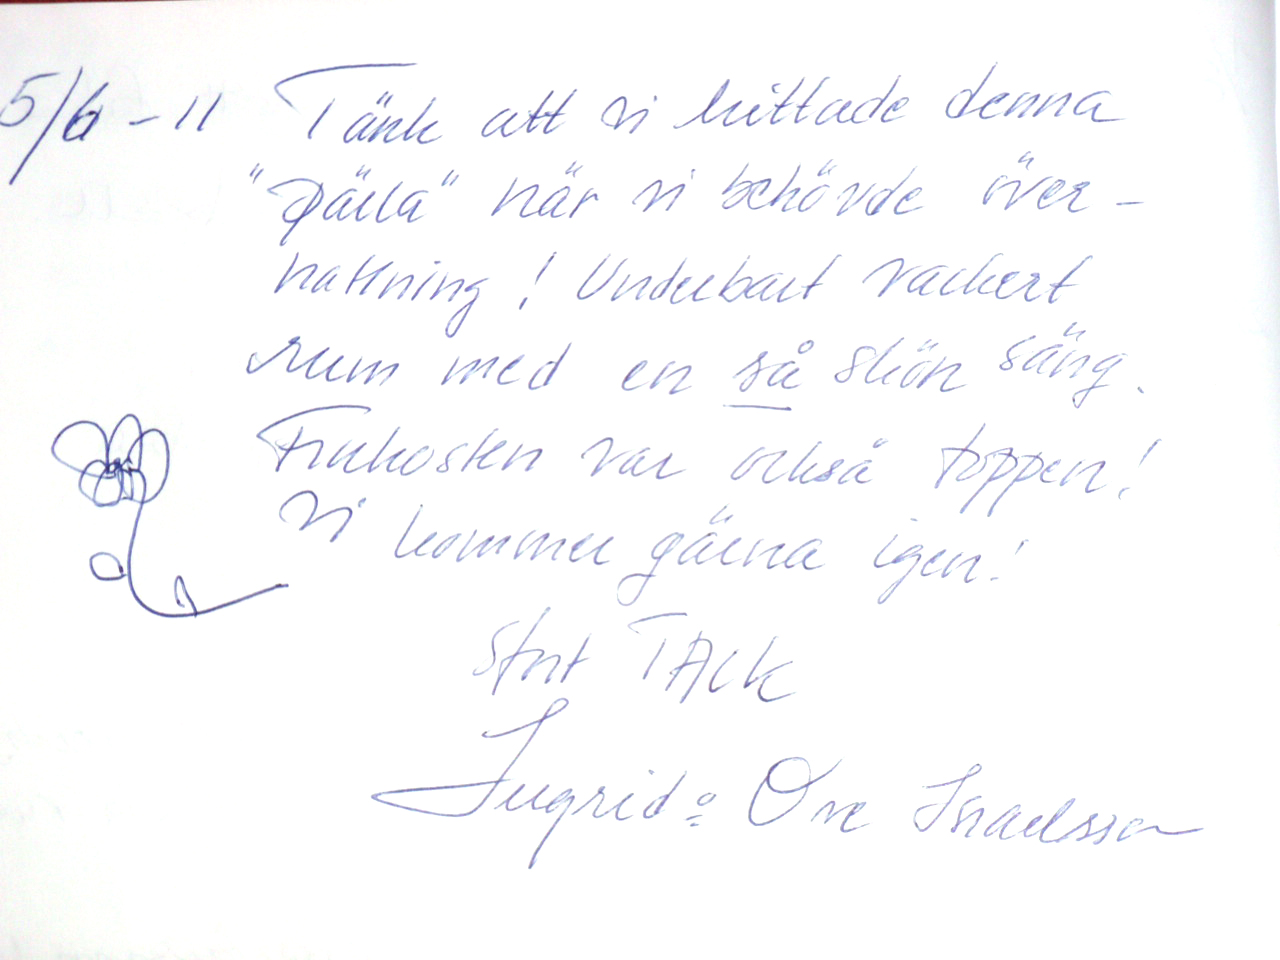 5/6 - 11 Tänk att vi hittade denna
"pärla" när vi behövde över-
nattning! Underbart vackert
rum med en så skön säng.
Frukosten var också toppen!
Vi kommer gärna igen!
Stort TACK
Ingrid o Ove Israelsson